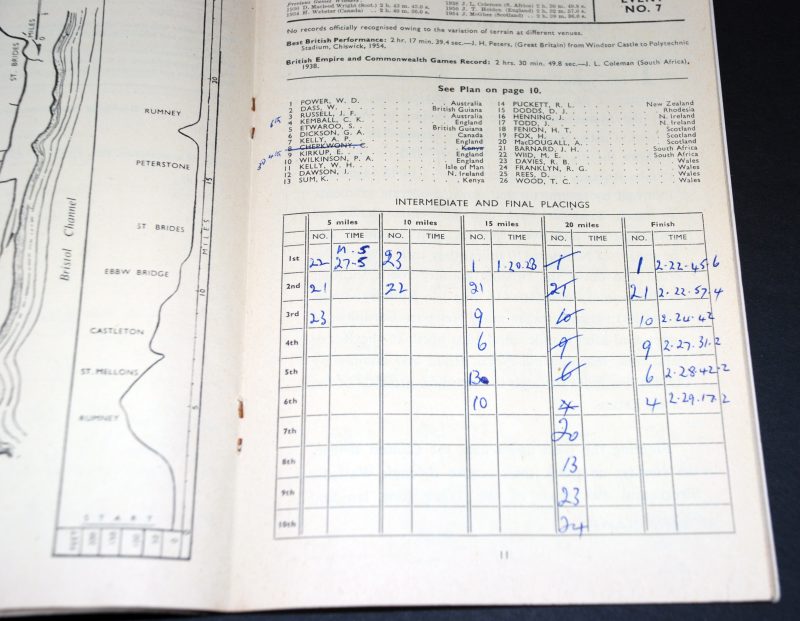 EVENT
NO. 7
No records officially recognised owing to the variation of terrain at different venues.
Best British Performance: 2 hr. 17 min. 39.4 sec.—J. H. Peters, (Great Britain) from Windsor Castle to Polytechnic
Stadium, Chiswick, 1954.
British Empire and Commonwealth Games Record: 2 hrs. 30 min. 49.8 sec.—J. L. Coleman (South Africa),
1938.
See Plan on page 10.
1 POWER, W. D. Australia
2 DASS, W. British Guiana
3 RUSSELL, J. F. Australia
4 KEMBALL, C. K. England
5 ETWAROO, S. British Guiana
6 DICKSON, G. A. Canada
7 KELLY, A. P. England
8 CHEPKWONY, C. Kenya
9 KIRKUP, E. England
10 WILKINSON, P. A. England
11 KELLY, W. H. Isle of Man
12 DAWSON, J. N. Ireland
13 SUM, K. Kenya
14 PUCKETT, R. L. New Zealand
15 DODDS, D. J. Rhodesia
16 HENNING, J. N. Ireland
17 TODD, J. N. Ireland
18 FENION, H. T. Scotland
19 FOX, H. Scotland
20 MacDOUGALL, A. Scotland
21 BARNARD, J. H. South Africa
22 WIID, M. E. South Africa
23 DAVIES, R. B. Wales
24 FRANKLYN, R. G. Wales
25 REES, D. Wales
26 WOOD, T. C. Wales
6th
INTERMEDIATE AND FINAL PLACINGS
5 miles 10 miles 15 miles 20 miles Finish
NO. TIME NO. TIME NO. TIME NO. TIME NO. TIME
1st 22 27-5 23 1 1·20·23 1 1 2-22-45·6
2nd 21 22 21 21 21 2·22·57·4
3rd 23 9 10 10 2-24-42
4th 6 9 9 2-27·31·2
5th 13 6 6 2-28·42·2
6th 10 4 4 2-29·17·2
7th 20
8th 13
9th 23
10th 24
11
RUMNEY
PETERSTONE
ST. BRIDES
EBBW BRIDGE
CASTLETON
ST. MELLONS
RUMNEY
START
FEET
MILES
5
10
15
20
Bristol Channel
ST. BRIDES
MILES